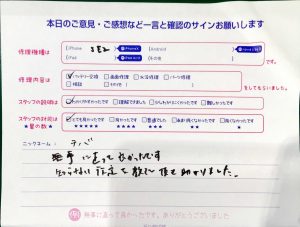 本日のご意見・ご感想など一言と確認のサインお願いします
修理機種は
iPhone SE2
Android
iPad
その他
です。
修理内容は
バッテリー交換 画面修理 水没修理 パーツ修理
相談 その他
をしてもらいました。
スタッフの説明は
わかりやすかったです 理解できました 少しわかりにくかったです 難しかったです
スタッフの対応は
★星の数★
とても良かったです 良かったです 普通でした 少し悪かったです 悪かったです
ニックネーム：
無事に直ってよかったです
知らない 設定を教えて頂き助かりました。
無事に直って良かったです。ありがとうございました